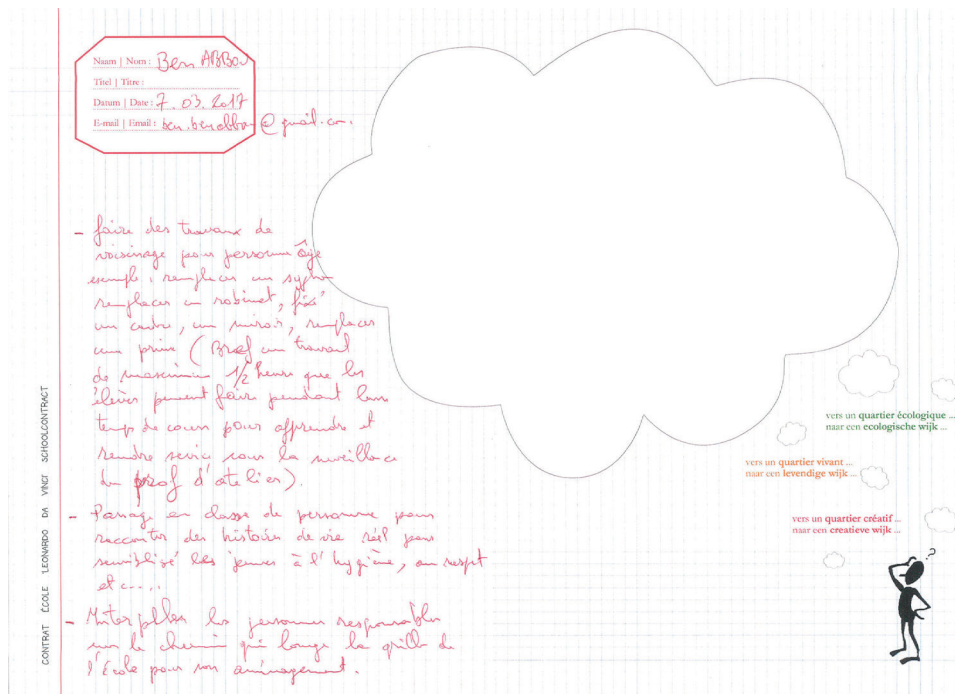 Naam | Nom : Ben ABBOU
Titel | Titre :
Datum | Date : 7.03.2017
E-mail | Email : @gmail.com.
- faire des travaux de
voisinage pour personne âge
exemple : remplacer un syphon
remplacer un robinet, fixé
un cadre, un miroir, remplacer
une prise (Bref un travail
de maximum 1/2 heure que les
élèves peuvent faire pendant leur
temps de cours pour apprendre et
rendre service sous la surveillance
du prof d'atelier).
- Passage en classe de personne pour
raconter des histoires de vie réel pour
sensiblisé les jeunes à l'hygiène, au respect
etc....
- les personnes responsables
sur le chemin qui longe la grille de
l'école pour son aménagement.
CONTRAT ÉCOLE LEONARDO DA VINCI SCHOOLCONTRACT
vers un quartier écologique ...
naar een ecologische wijk ...
vers un quartier vivant ...
naar een levendige wijk ...
vers un quartier créatif ...
naar een creatieve wijk ...
?